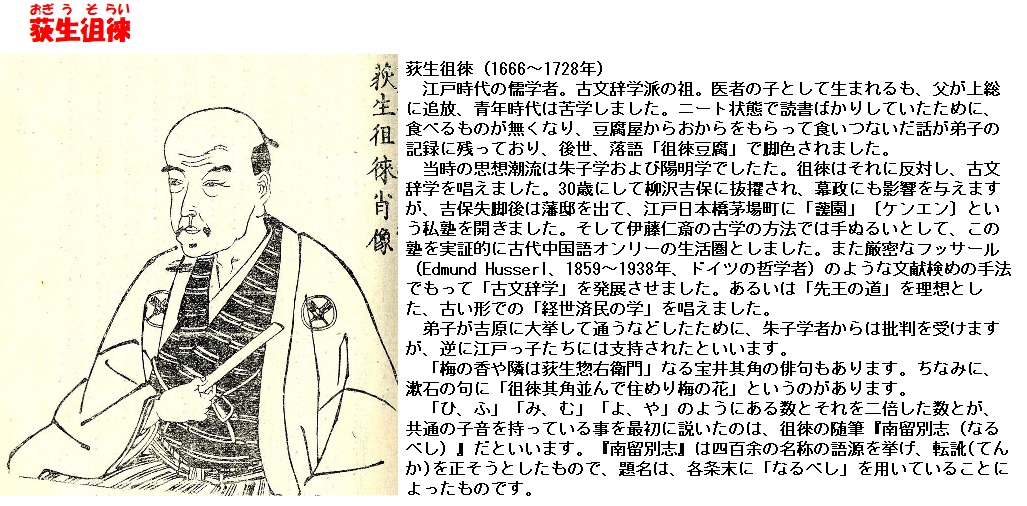 おぎうそらい
荻生徂徠
荻生徂徠肖像
荻生徂徠（1666～1728年）
　江戸時代の儒学者。古文辞学派の祖。医者の子として生まれるも、父が上総
に追放、青年時代は苦学しました。ニート状態で読書ばかりしていたために、
食べるものが無くなり、豆腐屋からおからをもらって食いつないだ話が弟子の
記録に残っており、後世、落語「徂徠豆腐」で脚色されました。
　当時の思想潮流は朱子学および陽明学でしたた。徂徠はそれに反対し、古文
辞学を唱えました。30歳にして柳沢吉保に抜擢され、幕政にも影響を与えます
が、吉保失脚後は藩邸を出て、江戸日本橋茅場町に「蘐園」〔ケンエン〕とい
う私塾を開きました。そして伊藤仁斎の古学の方法では手ぬるいとして、この
塾を実証的に古代中国語オンリーの生活圏としました。また厳密なフッサール
（Edmund Husserl、1859～1938年、ドイツの哲学者）のような文献検めの手法
でもって「古文辞学」を発展させました。あるいは「先王の道」を理想とし
た、古い形での「経世済民の学」を唱えました。
　弟子が吉原に大挙して通うなどしたために、朱子学者からは批判を受けます
が、逆に江戸っ子たちには支持されたといいます。
　「梅の香や隣は荻生惣右衛門」なる宝井其角の俳句もあります。ちなみに、
漱石の句に「徂徠其角並んで住めり梅の花」というのがあります。
　「ひ、ふ」「み、む」「よ、や」のようにある数とそれを二倍した数とが、
共通の子音を持っている事を最初に説いたのは、徂徠の随筆『南留別志（なる
べし）』だといいます。『南留別志』は四百余の名称の語源を挙げ、転訛(てん
か)を正そうとしたもので、題名は、各条末に「なるべし」を用いていることに
よったものです。